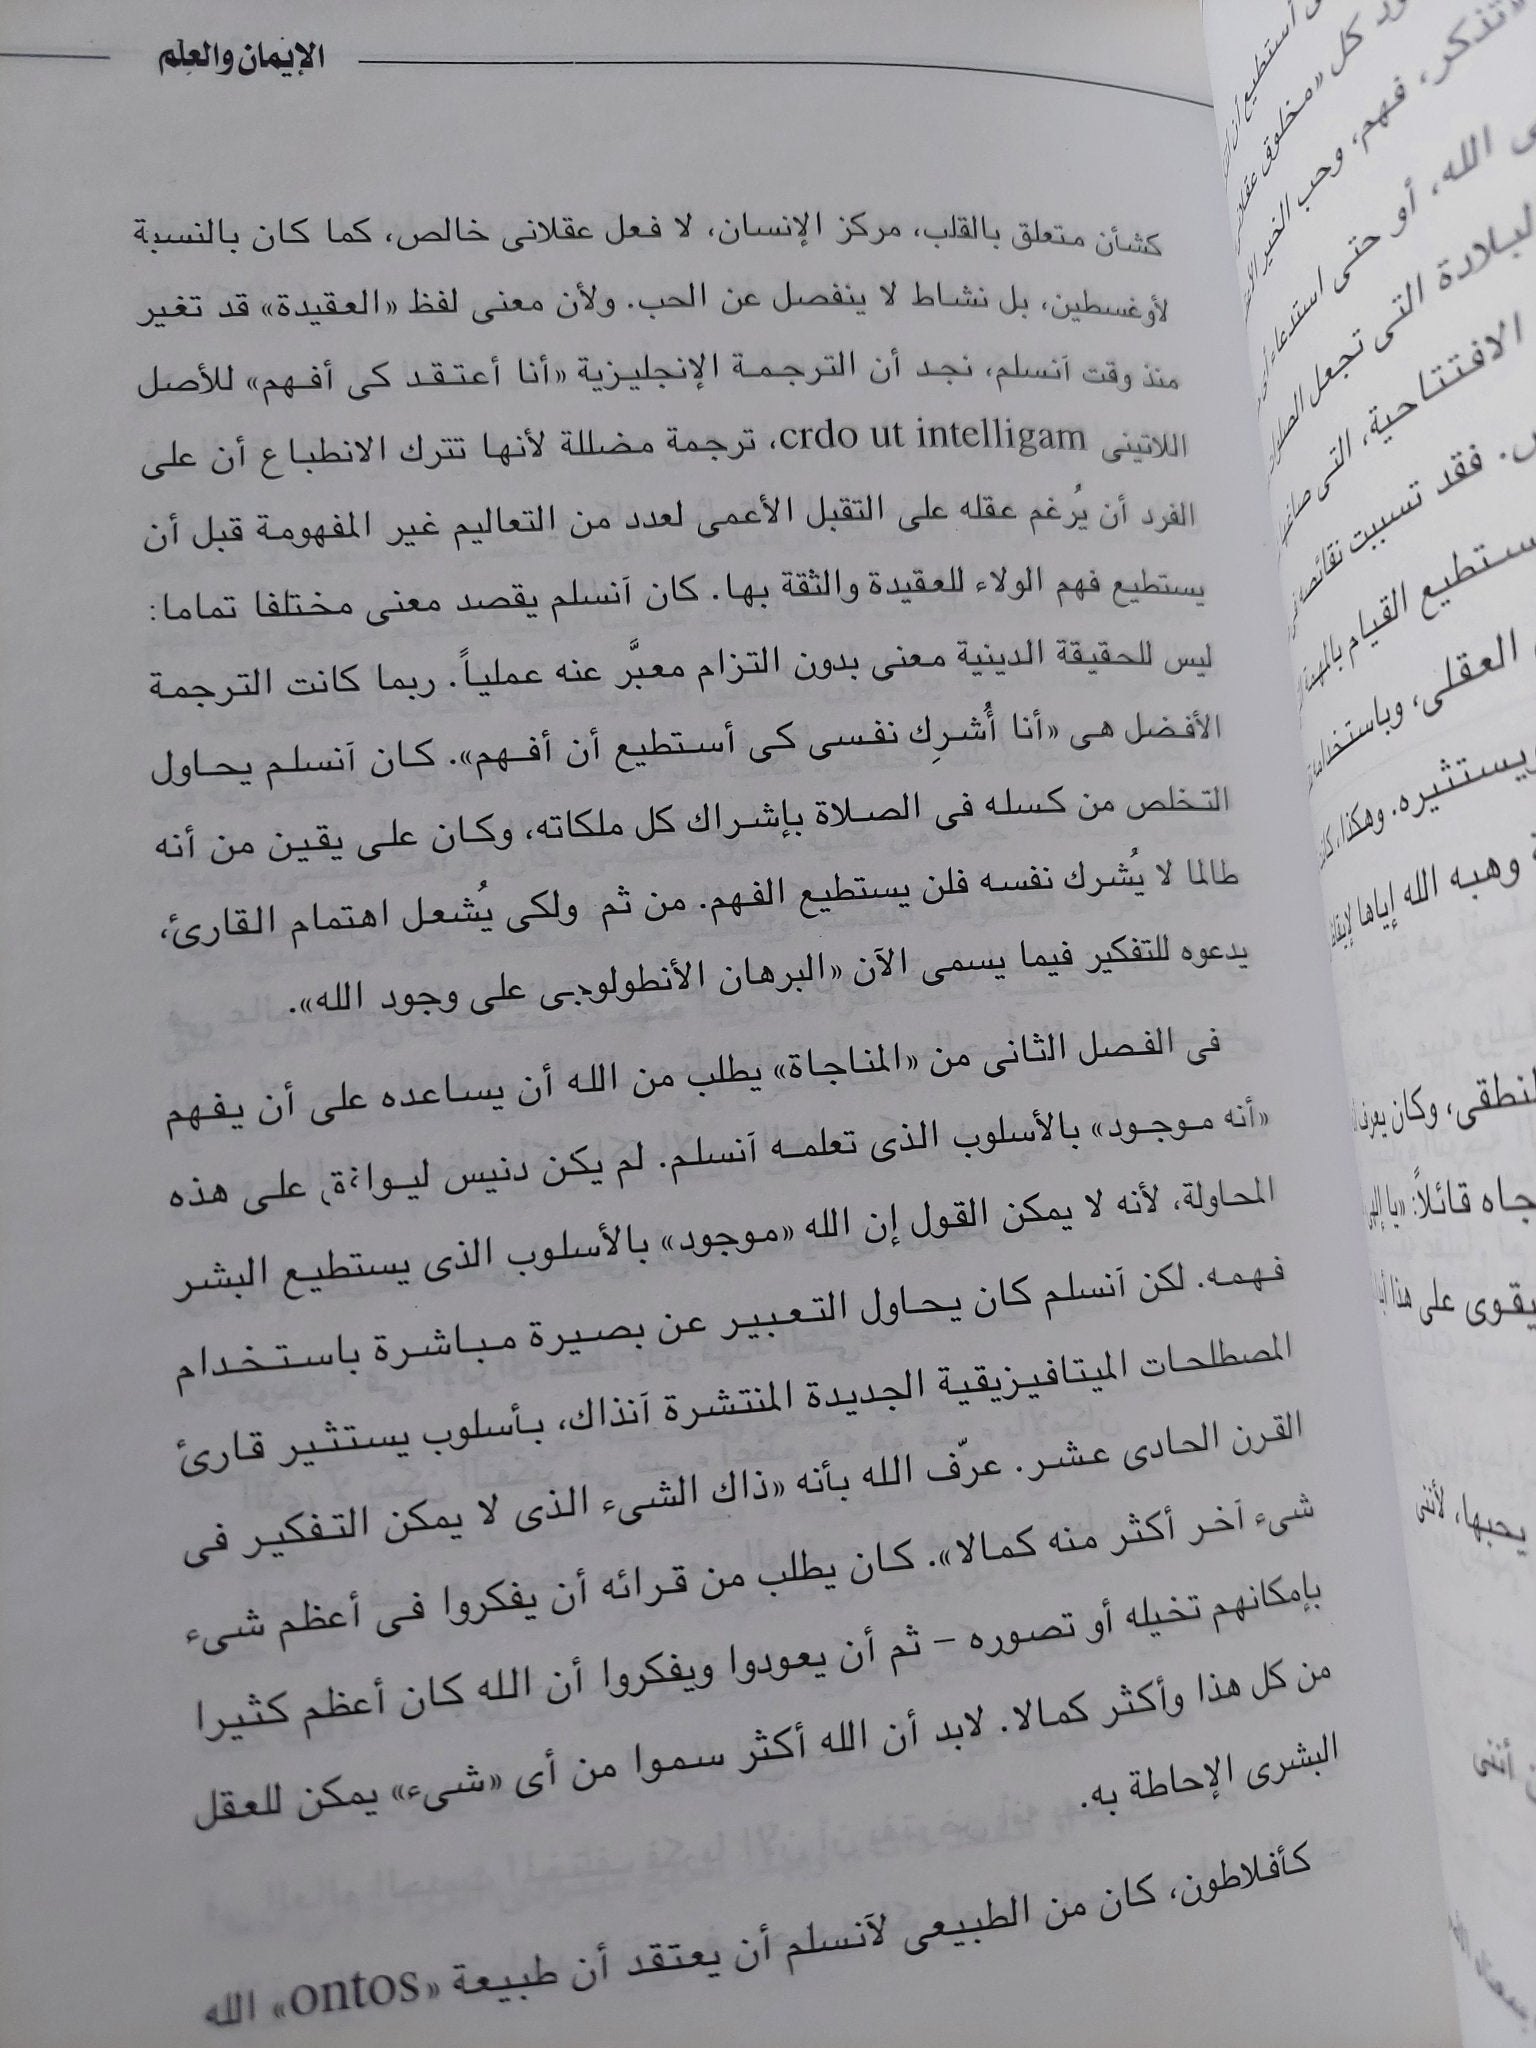 الإيمان والعلم
كشأن متعلق بالقلب، مركز الإنسان، لا فعل عقلانى خالص، كما كان بالنسبة
لأوغسطين، بل نشاط لا ينفصل عن الحب. ولأن معنى لفظ «العقيدة» قد تغير
منذ وقت آنسلم، نجد أن الترجمة الإنجليزية «أنا أعتقد كى أفهم» للأصل
اللاتينى crdo ut intelligam، ترجمة مضللة لأنها تترك الانطباع أن على
الفرد أن يُرغم عقله على التقبل الأعمى لعدد من التعاليم غير المفهومة قبل أن
يستطيع فهم الولاء للعقيدة والثقة بها. كان آنسلم يقصد معنى مختلفا تماما:
ليس للحقيقة الدينية معنى بدون التزام معبَّر عنه عملياً. ربما كانت الترجمة
الأفضل هى «أنا أُشرِك نفسى كى أستطيع أن أفهم». كان آنسلم يحاول
التخلص من كسله فى الصلاة بإشراك كل ملكاته، وكان على يقين من أنه
طالما لا يُشرك نفسه فلن يستطيع الفهم. من ثم ولكى يُشعل اهتمام القارئ،
يدعوه للتفكير فيما يسمى الآن «البرهان الأنطولوجى على وجود الله».
فى الفصل الثانى من «المناجاة» يطلب من الله أن يساعده على أن يفهم
«أنه موجود» بالأسلوب الذى تعلمه آنسلم. لم يكن دنيس على هذه
المحاولة، لأنه لا يمكن القول إن الله «موجود» بالأسلوب الذى يستطيع البشر
فهمه. لكن آنسلم كان يحاول التعبير عن بصيرة مباشرة باستخدام
المصطلحات الميتافيزيقية الجديدة المنتشرة آنذاك، بأسلوب يستثير قارئ
القرن الحادى عشر. عرّف الله بأنه «ذاك الشىء الذى لا يمكن التفكير فى
شىء آخر أكثر منه كمالا». كان يطلب من قرائه أن يفكروا فى أعظم شىء
بإمكانهم تخيله أو تصوره – ثم أن يعودوا ويفكروا أن الله كان أعظم كثيرا
من كل هذا وأكثر كمالا. لابد أن الله أكثر سموا من أى «شىء» يمكن للعقل
البشرى الإحاطة به.
كأفلاطون، كان من الطبيعى لآنسلم أن يعتقد أن طبيعة «ontos» الله